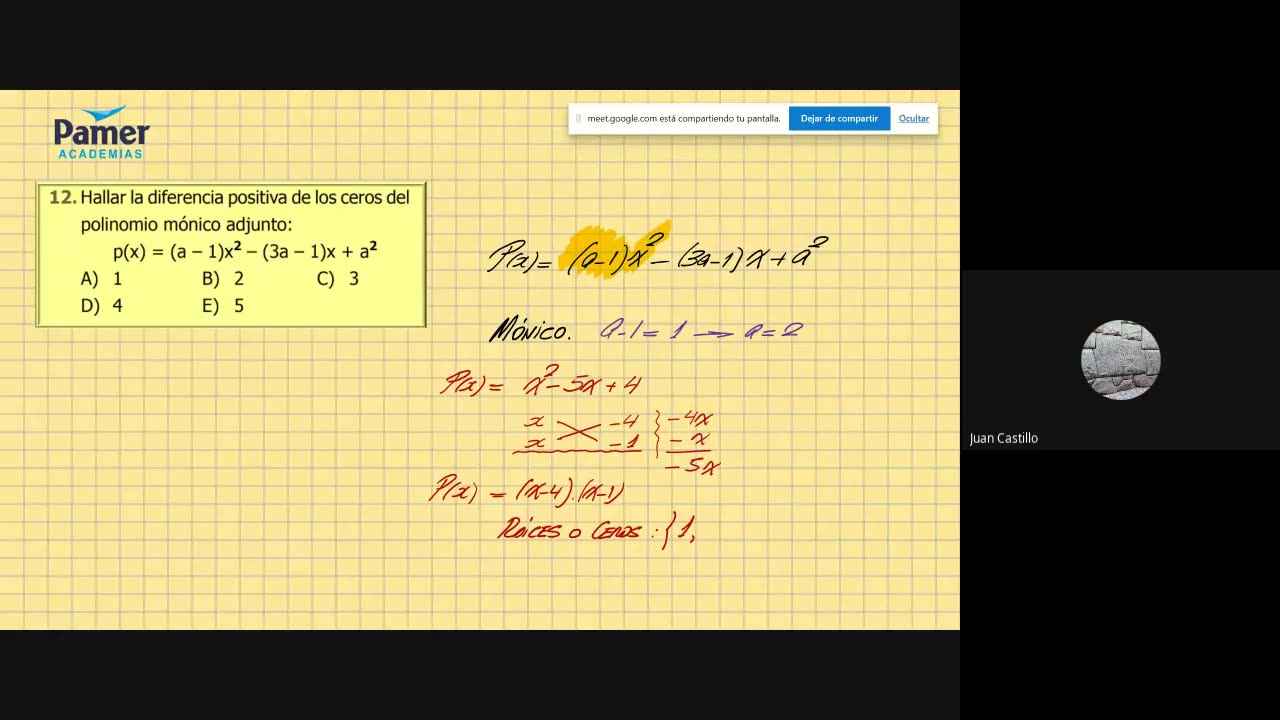 Pamer
ACADEMIAS
meet.google.com está compartiendo tu pantalla.
Dejar de compartir
Ocultar
12. Hallar la diferencia positiva de los ceros del
polinomio mónico adjunto:
p(x) = (a – 1)x² – (3a – 1)x + a²
A) 1 B) 2 C) 3
D) 4 E) 5
P(x)= (a-1)x² - (3a-1)x + a²
MÓNICO. a-1=1 → a=2
P(x)= x²-5x+4
x -4 } -4x
x -1 - x
-5x
P(x) = (x-4).(x-1)
RAÍCES o CEROS : { 1,
Juan Castillo